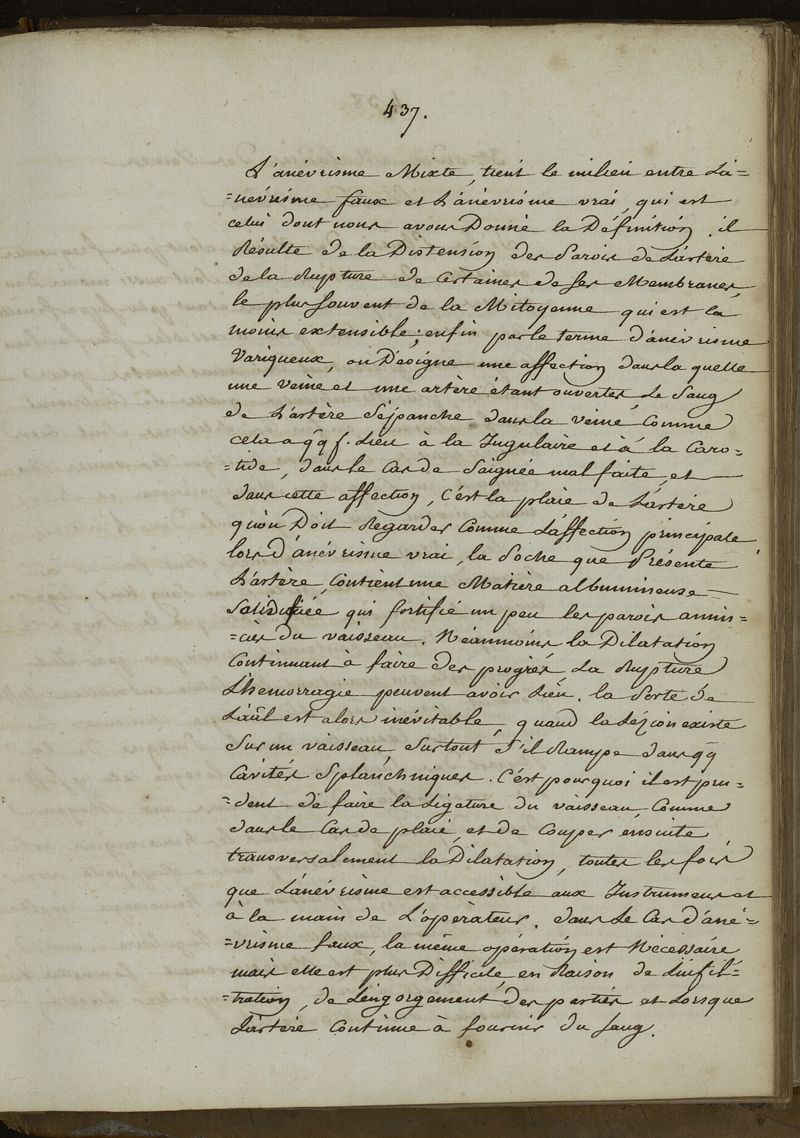 437.
L'anévrisme Mixte, tient le milieu entre L'a-
=nevrisme faux et L'anévrisme vrai, qui est
celui dont nous avons Donné la Définition. il
Résulte de la Distension des Parois de L'artère
de la Rupture de Certaines de ses Membranes,
le plus souvent de la Mitoyenne qui est la
moins extensible; enfin par le terme d'anévrisme
Variqueux, on Désigne une affection dans la quelle
une veine et une artère étant ouvertes, Le Sang
de L'artère S'épanche dans la veine, Comme
cela a qq f. Lieu à la Jugulaire et à la Caro-
=tide, dans le Cas de Saignée mal faite, et
dans cette affection, C'est la plaie de L'artère
qu'on Doit Regarder Comme L'affection principale
lors d'anévrisme vrai, la Poche que Présente
L'artère, Contient une Matière albumineuse
Solidifiée qui fortifie un peu les parois amin-
=cies du vaisseau. Néanmoins la Dilatation
Continuant à faire des progrès La Rupture
L'hemorragie peuvent avoir Lieu. la Perte de
L'aûl est alors inévitable, quand la Lézion existe
Sur un vaisseau, Surtout S'il Rampe dans qq
Cavités Splanchniques. C'est pourquoi il est pru-
=dent de faire la Ligature du vaisseau, Comme
dans le Cas de plaie, et de Couper ensuite
transversalement la Dilatation, toutes les fois
que L'anévrisme est accessible aux Instrumens et
à la main de L'opérateur. dans Le Cas d'ané-
=vrisme faux, la même opération est Nécessaire
mais elle est plus Difficile, en Raison de L'infil-
=tration, de L'engorgement des parties et Lorsque
L'artère Continue à fournir du Sang.